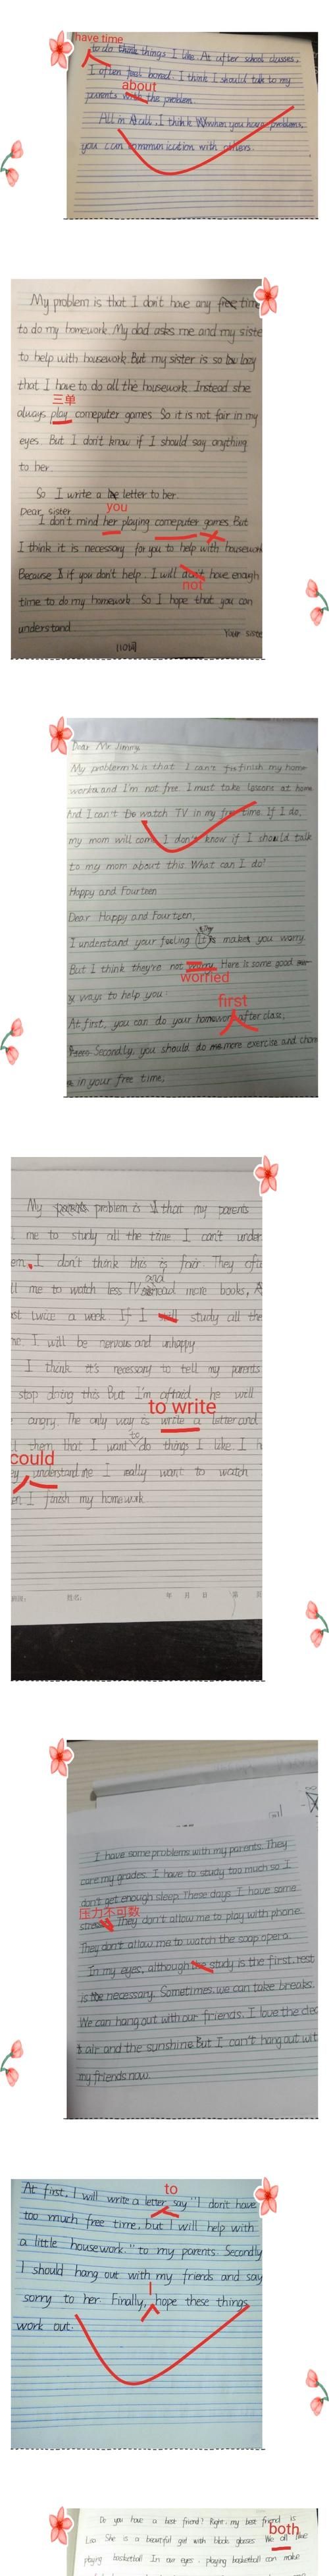 have time
to do things I like. At after school classes,
I often feel bored. I think I should talk to my
about
parents with the problem.
All in all, I think when you have problems,
you can communication with others.
My problem is that I don't have any free time
to do my homework. My dad asks me and my siste
to help with housework. But my sister is so lazy
that I have to do all the housework. Instead she
三单
always play comeputer games. So it is not fair in my
eyes. But I don't know if I should say anything
to her.
So I write a letter to her.
Dear sister
you
I don't mind her playing comeputer games. But
I think it is necessary for you to help with housework
Because if you don't help. I will don't have enough
not
time to do my homework. So I hope that you can
understand.
Your siste
110词
Dear Mr. Jimmy,
My problem is that I can't finish my home
work and I'm not free. I must take lessons at home
And I can't watch TV in my free time. If I do,
my mom will come. I don't know if I should talk
to my mom about this. What can I do?
Happy and Fourteen
Dear Happy and Fourteen,
I understand your feeling. It makes you worry.
But I think they're not worry. Here is some good
worried
ways to help you:
first
At first, you can do your homework after class,
Secondly, you should do more exercise and
in your free time,
My problem is that my parents
me to study all the time I can't under
em. I don't think this is fair. They ofte
and
ll me to watch less TV read more books, A
st twice a week. If I study all the
me. I will be nervous and unhappy.
I think it's necessary to tell my parents
stop doing this. But I'm afraid he will
to write
angry. The only way is write a letter and
to
l them that I want do things I like. I h
could
ey understand me. I really want to watch
en I finish my homework.
姓名:
年 月 日
I have some problems with my parents. They
care my grades. I have to study too much so I
don't get enough sleep. These days. I have some
压力不可数
They don't allow me to play with phone.
They don't allow me to watch the soap opera.
In my eyes, although the study is the first, rest
is necessary. Sometimes, we can take breaks.
We can hang out with our friends. I love the
air and the sunshine. But I can't hang out wit
my friends now.
to
At first, I will write a letter say "I don't have
too much free time, but I will help with
a little housework." to my parents. Secondly
I should hang out with my friends and say
I
sorry to her. Finally, hope these things
work out.
Do you have a best friend? Right, my best friend is
both
She is a beautiful girl with black glasses. We all like
playing basketball. In our eyes, playing basketball can make